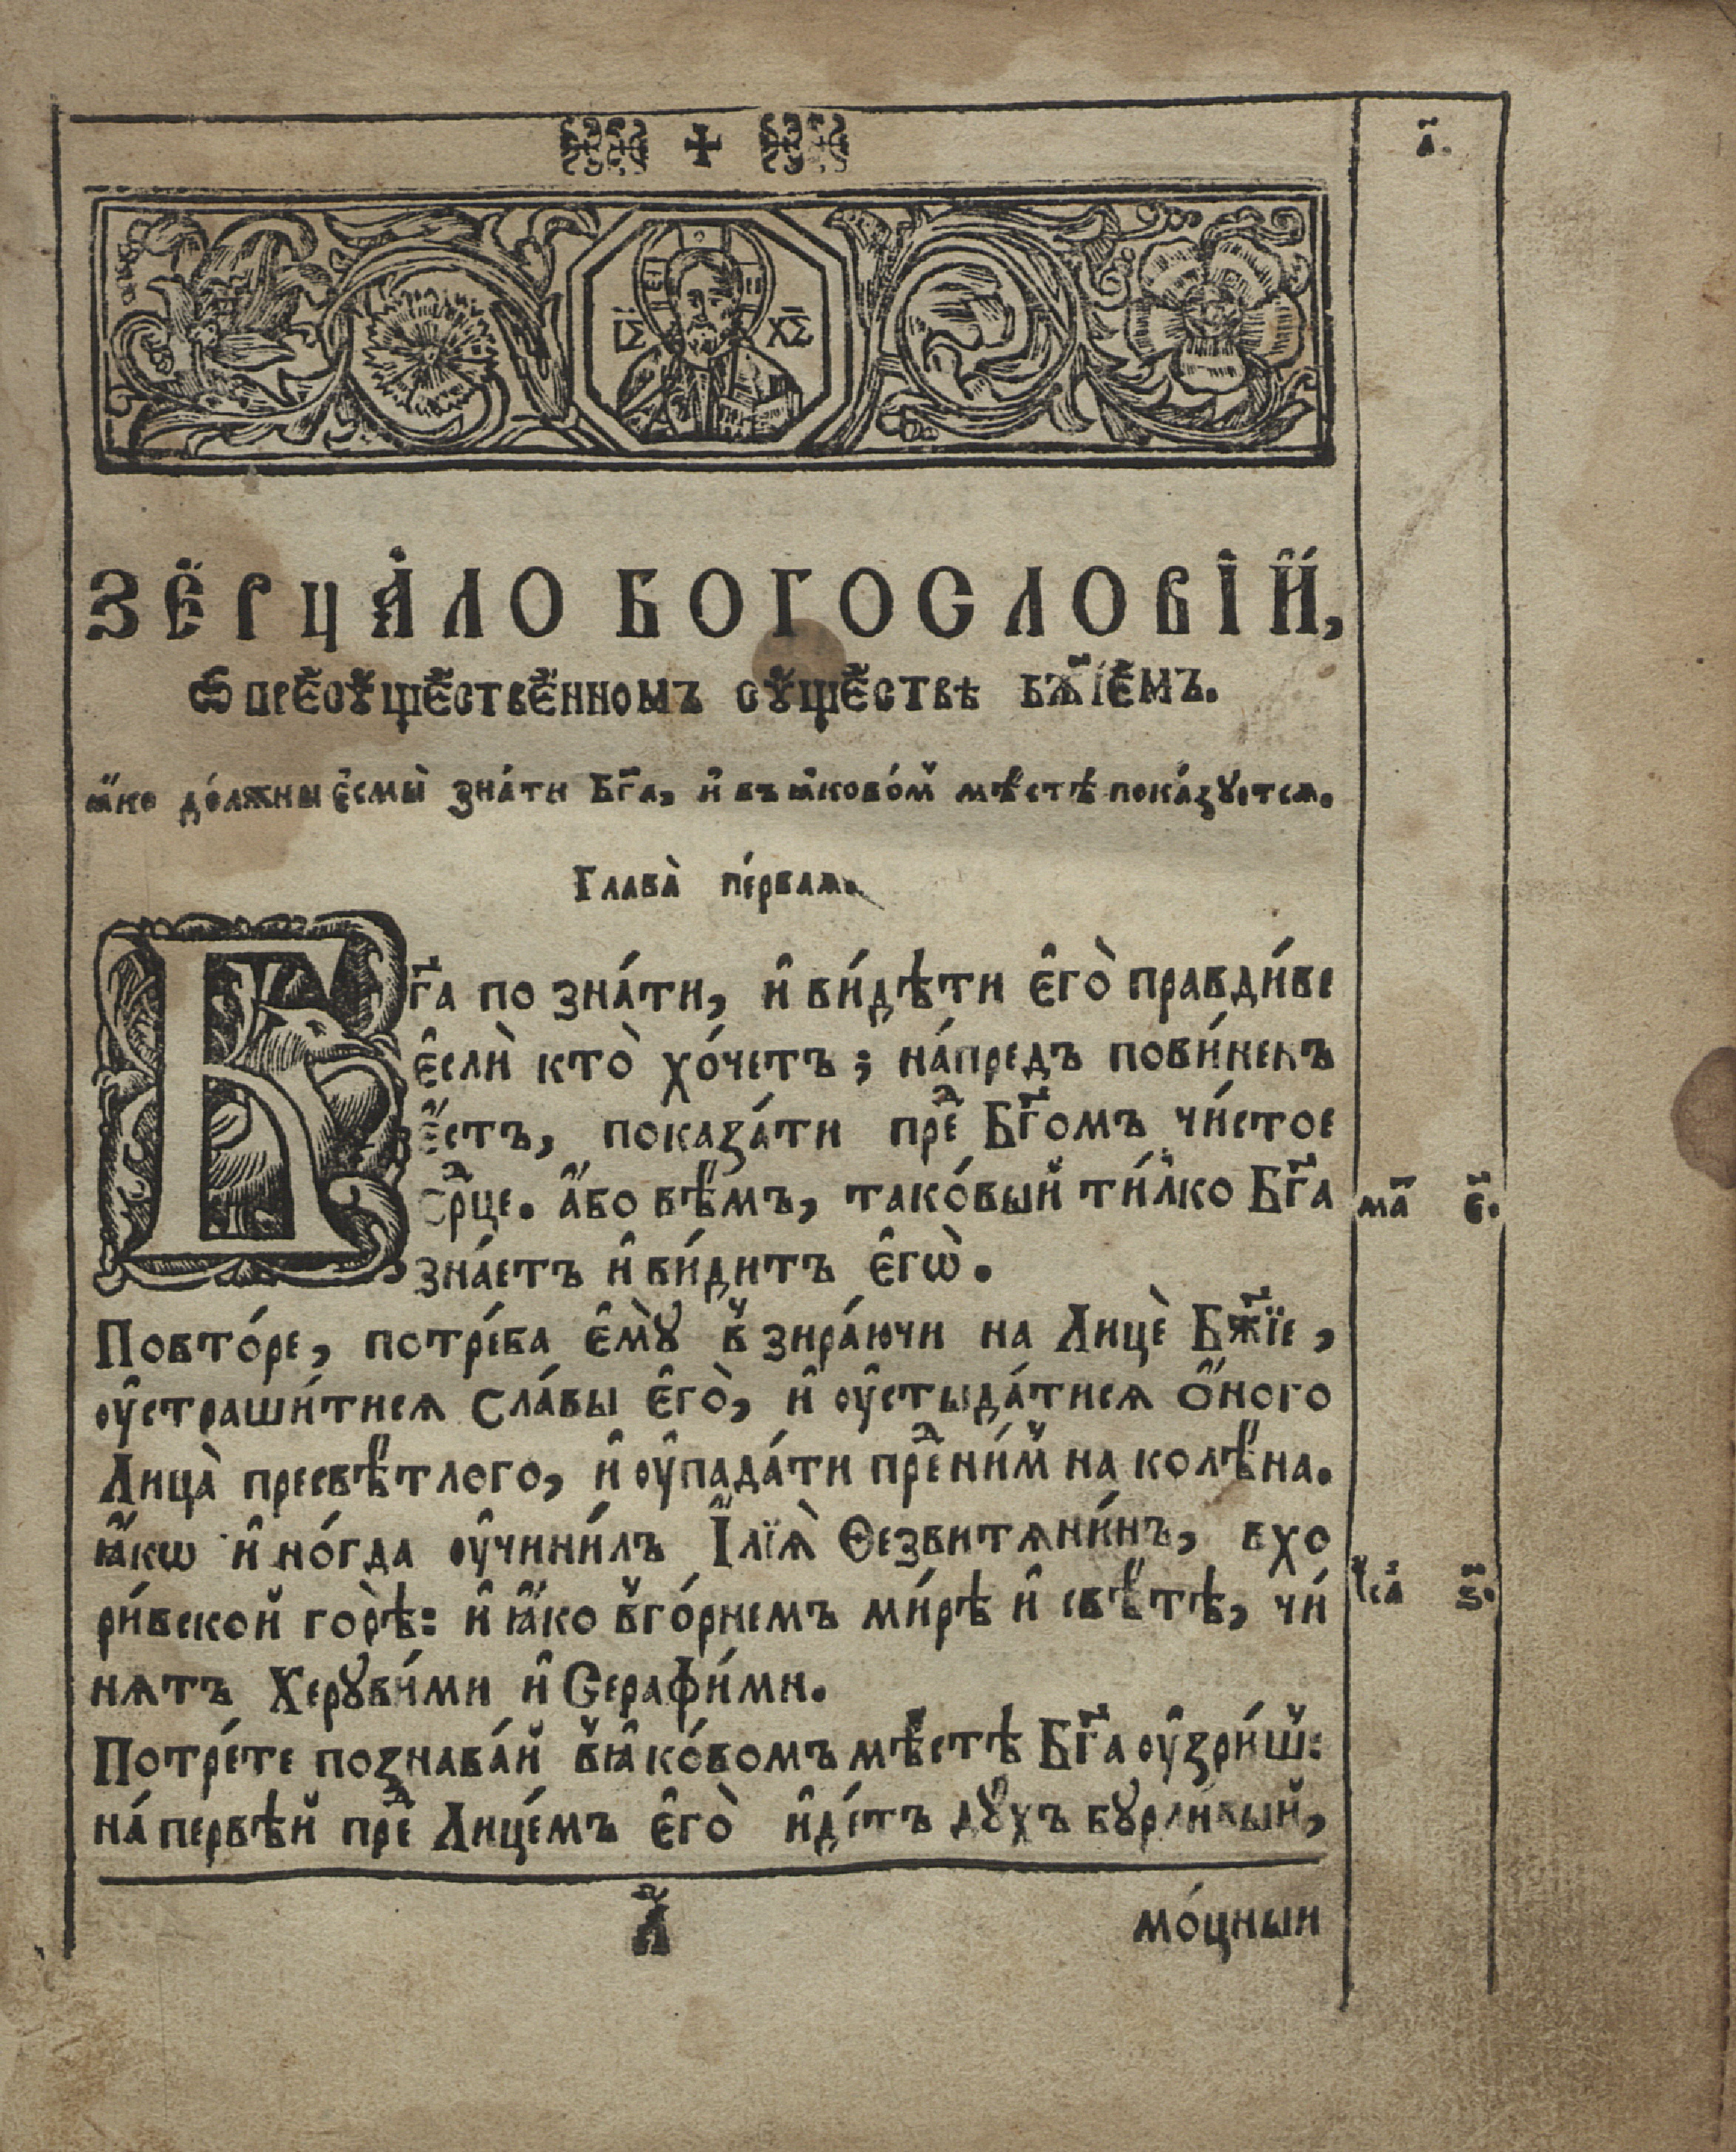 а҃.
І҃С Х҃С
ЗЕРЦА́ЛО БОГОСЛОВІ́Й,
Ѡ пресꙋщественномъ сꙋществѣ Бж҃їемъ.
ꙗ҆́ко до́лжны є҆смы̀ зна́ти Бг҃а, и҆ въ ꙗ҆ково́м мѣ́стѣ пока́зꙋется.
Глава̀ пе́рваѧ.
Бг҃а по зна́ти, и҆ ви́дѣти є҆го̀ правди́ве
є҆слѝ кто̀ хо́четъ; на́предъ пови́ненъ
є҆́стъ, показа́ти преⷣ Бг҃омъ чи́стое
ср҃це. а҆́бо вѣ́мъ, тако́вый ти́лко Бг҃а
зна́етъ и҆ ви́дитъ є҆гѡ̀.
маⷴ҇ є҃.
Повто́ре, потре́ба є҆мꙋ̀ в̾ зира́ючи на Лицѐ Бж҃їе,
ѹ҆страши́тисѧ сла́вы є҆го̀, и҆ ѹ҆стыда́тисѧ ѻ҆́ного
Лица̀ пресвѣ́тлого, и҆ ѹ҆пада́ти преⷣ ни́м̾ на колѣ́на.
ꙗ҆́кѡ и҆ но́гда ѹ҆чини́лъ І҆лїѧ̀ Ѳезвитѧни́нъ, в хо
ри́вской го̀рѣ: и҆ ꙗ҆́ко в̾ го́рнемъ ми́рѣ и҆ свѣ́тѣ, чи́
і҆са́ ѕ҃.
нѧтъ Херꙋви́ми и҆ Серафи́ми.
Потре́те познава́й в̾ ꙗ҆ко́вомъ мѣ́стѣ Бг҃а ѹ҆зри́ш̾:
на́ первѣй преⷣ Лице́мъ є҆го̀ и҆де́тъ дꙋ́хъ бꙋрли́вый,
А҃
мо́цный